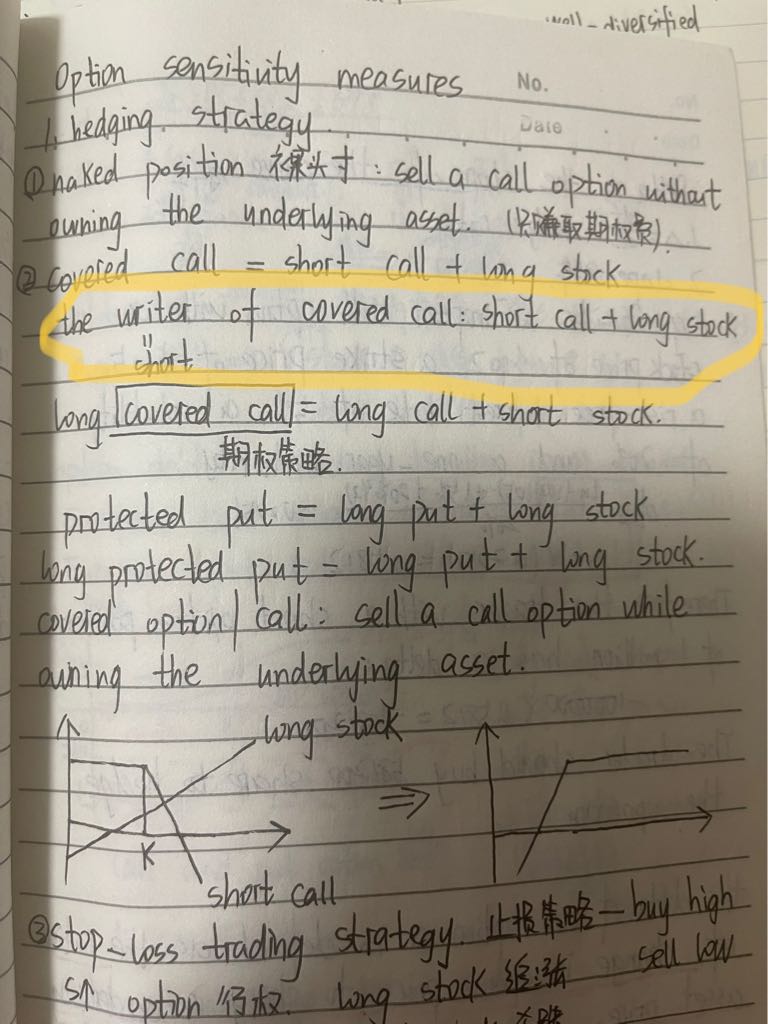 well-diversified
Option sensitivity measures No.
Date
1. hedging strategy
① naked position 裸头寸: sell a call option without
owning the underlying asset. (只赚取期权费).
② covered call = short call + long stock
the writer of covered call: short call + long stock
"
short
long covered call = long call + short stock.
期权策略.
protected put = long put + long stock
long protected put = long put + long stock.
covered option/call: sell a call option while
owning the underlying asset.
long stock
⇒
K
short call
③ stop-loss trading strategy. 止损策略 - buy high
sell low
S↑ option 行权. long stock